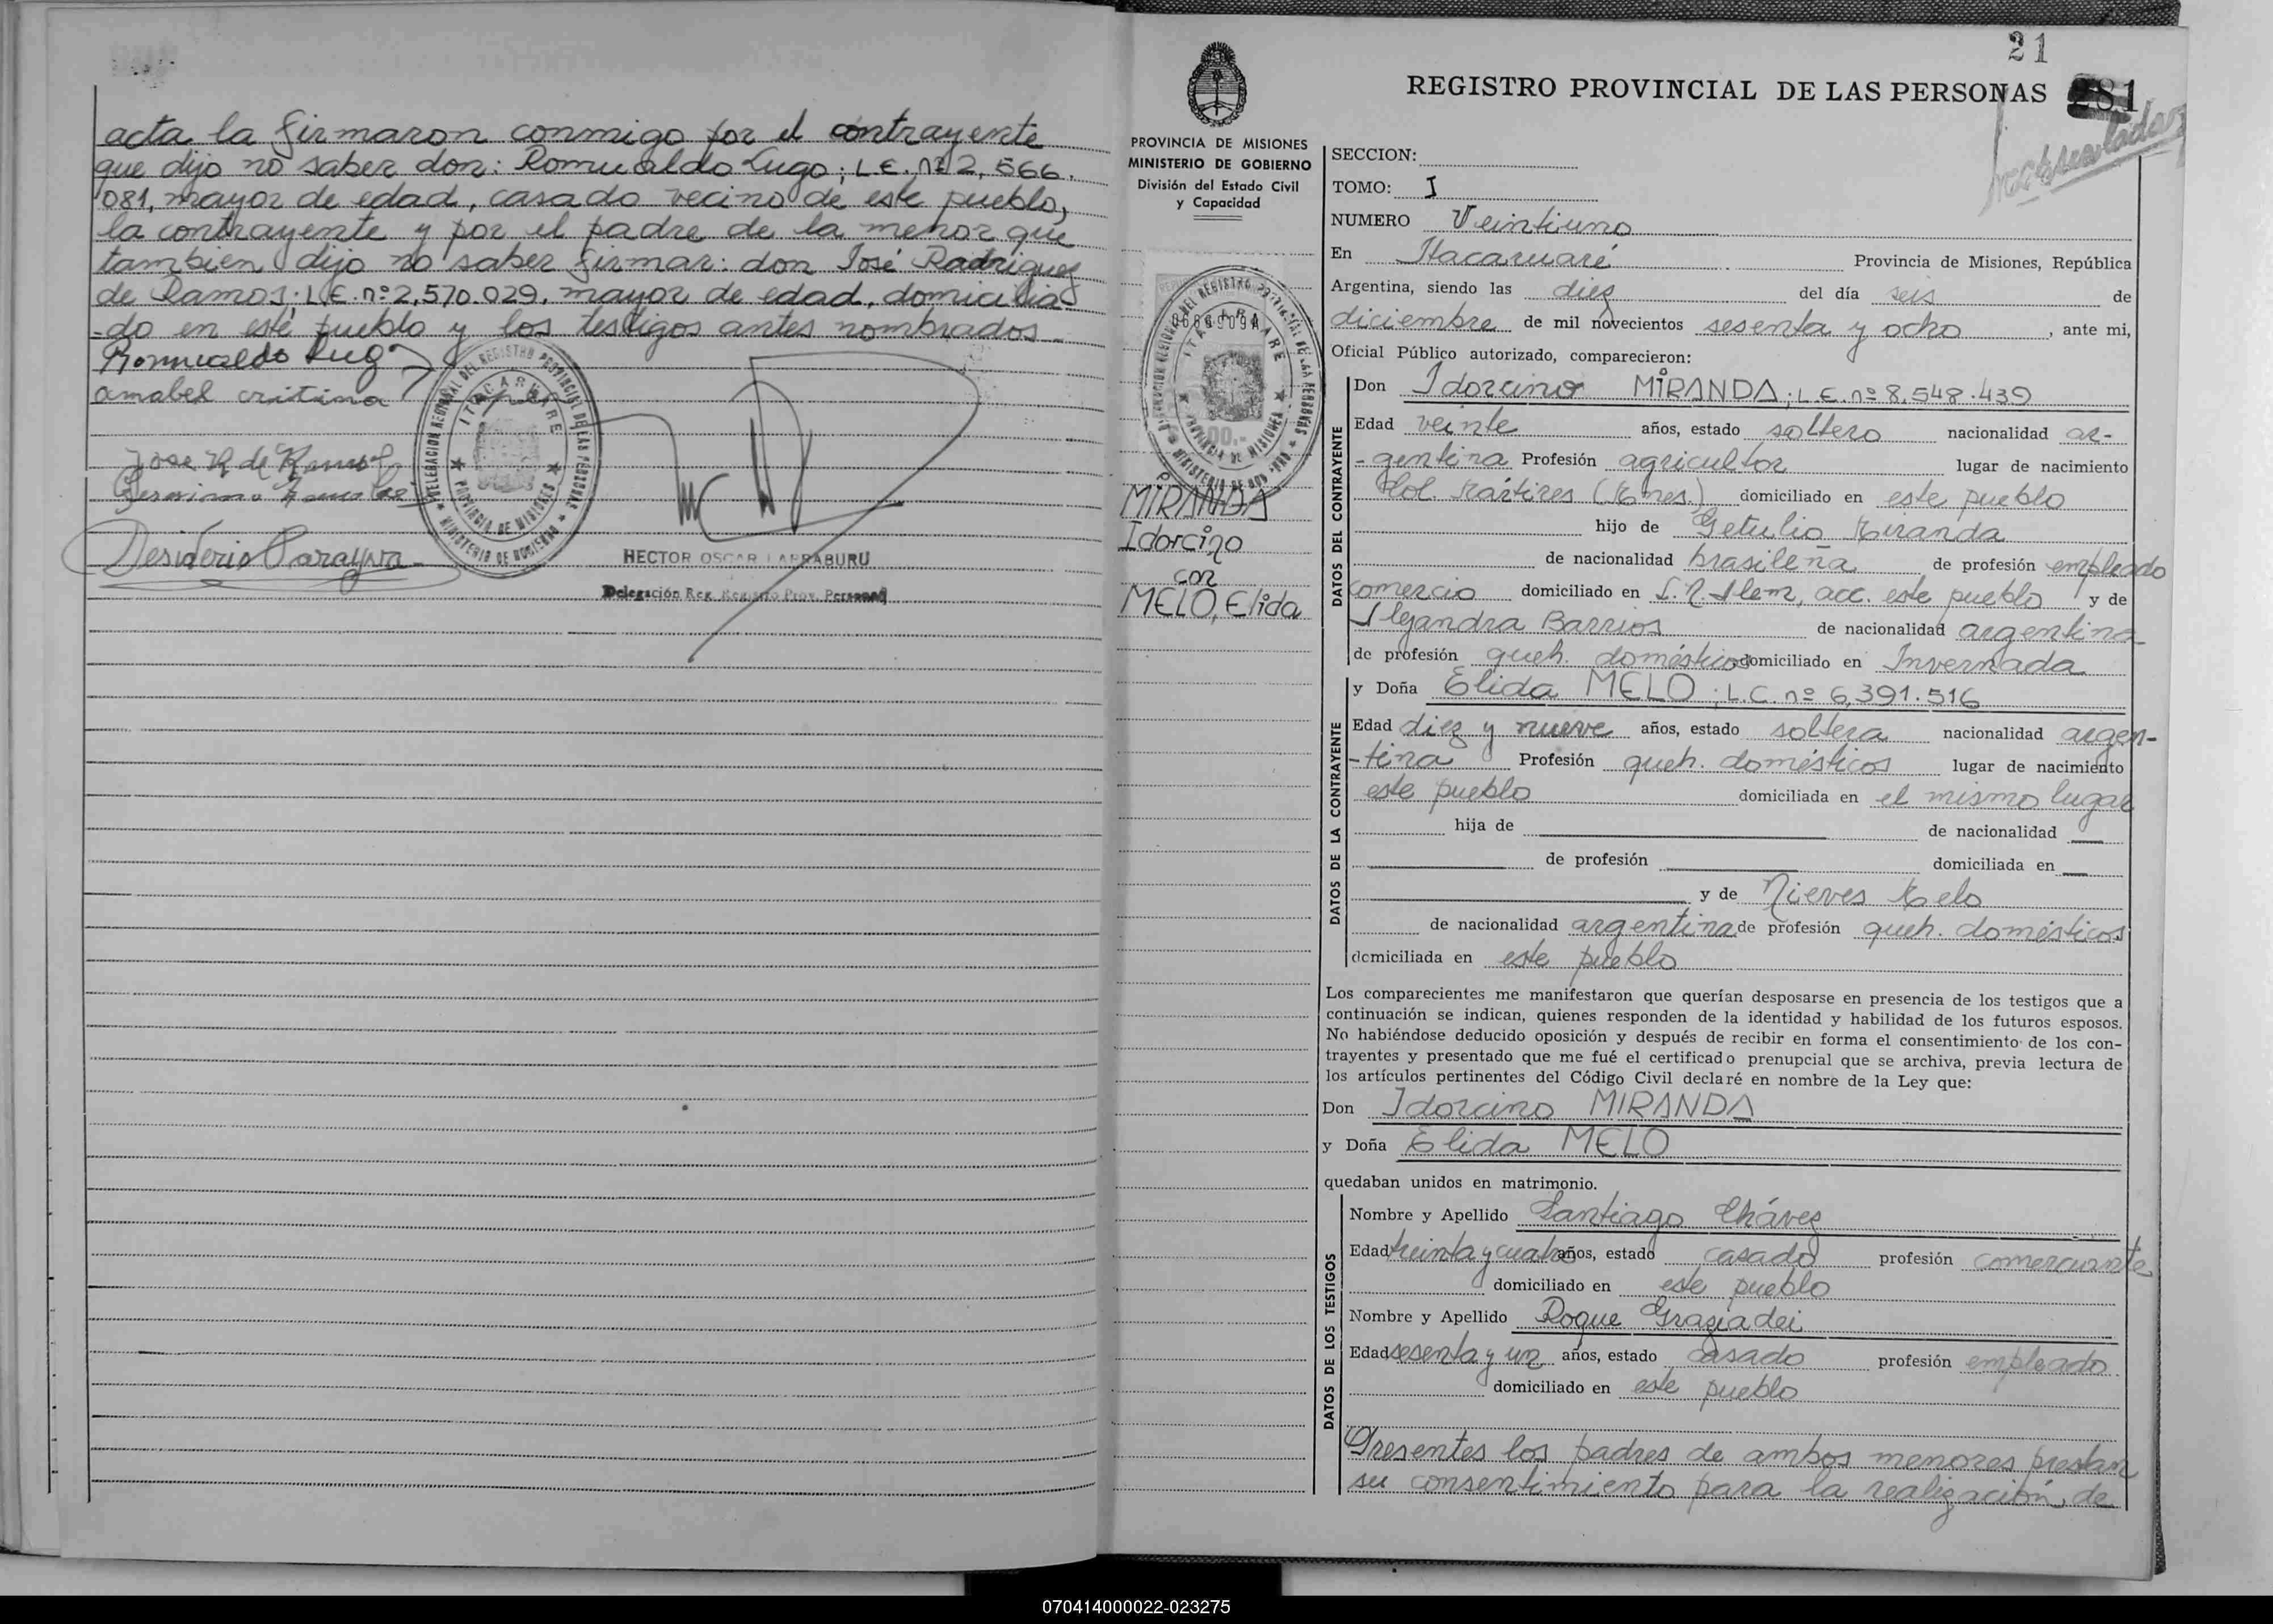 acta la firmaron conmigo por el contrayente
que dijo no saber don: Romualdo Lugo; L.E. nº 2,566.
081, mayor de edad, casado vecino de este pueblo,
la contrayente y por el padre de la menor que
tambien dijo no saber firmar: don José Rodriguez
de Ramos; L.E. nº 2,570.029, mayor de edad, domicilia-
-do en este pueblo y los testigos antes nombrados
Romualdo Lugo
amabel cristina
Jose R de Ramos
Desiderio
DELEGACION REGIONAL DEL REGISTRO PROVINCIAL DE LAS PERSONAS
ITACARUARE
PROVINCIA DE MISIONES
MINISTERIO DE GOBIERNO
HECTOR OSCAR LARRABURU
Delegación Reg. Registro Prov. Personas
21
REGISTRO PROVINCIAL DE LAS PERSONAS 281
PROVINCIA DE MISIONES
MINISTERIO DE GOBIERNO
División del Estado Civil
y Capacidad
DELEGACION REGIONAL DEL REGISTRO PROVINCIAL DE LAS PERSONAS
ITACARUARE
PROVINCIA DE MISIONES
MINISTERIO DE GOBIERNO
MIRANDA
Idorcino
con
MELO, Elida
SECCION:
TOMO: I
NUMERO Veintiuno
En Itacaruaré Provincia de Misiones, República
Argentina, siendo las diez del día seis de
diciembre de mil novecientos sesenta y ocho, ante mi,
Oficial Público autorizado, comparecieron:
DATOS DEL CONTRAYENTE
Don Idorcino MIRANDA; L.E. nº 8.548.439
Edad veinte años, estado soltero nacionalidad ar-
-gentina Profesión agricultor lugar de nacimiento
Col. Mártires (Mnes.) domiciliado en este pueblo
hijo de Getulio Miranda
de nacionalidad brasileña de profesión empleado
comercio domiciliado en L.N. Alem, acc. este pueblo y de
Alejandra Barrios de nacionalidad argentina
de profesión queh. domésticos domiciliado en Invernada
DATOS DE LA CONTRAYENTE
y Doña Elida MELO; L.C. nº 6,391.516
Edad diez y nueve años, estado soltera nacionalidad argen-
-tina Profesión queh. domésticos lugar de nacimiento
este pueblo domiciliada en el mismo lugar
hija de de nacionalidad
de profesión domiciliada en
y de Nieves Melo
de nacionalidad argentina de profesión queh. domésticos
domiciliada en este pueblo
Los comparecientes me manifestaron que querían desposarse en presencia de los testigos que a
continuación se indican, quienes responden de la identidad y habilidad de los futuros esposos.
No habiéndose deducido oposición y después de recibir en forma el consentimiento de los con-
trayentes y presentado que me fué el certificado prenupcial que se archiva, previa lectura de
los artículos pertinentes del Código Civil declaré en nombre de la Ley que:
Don Idorcino MIRANDA
y Doña Elida MELO
quedaban unidos en matrimonio.
DATOS DE LOS TESTIGOS
Nombre y Apellido Santiago Cháves
Edad treinta y cuatro años, estado casado profesión comerciante
domiciliado en este pueblo
Nombre y Apellido Roque Graziadei
Edad sesenta y un años, estado casado profesión empleado
domiciliado en este pueblo
Presentes los padres de ambos menores prestan
su consentimiento para la realización de
070414000022-023275